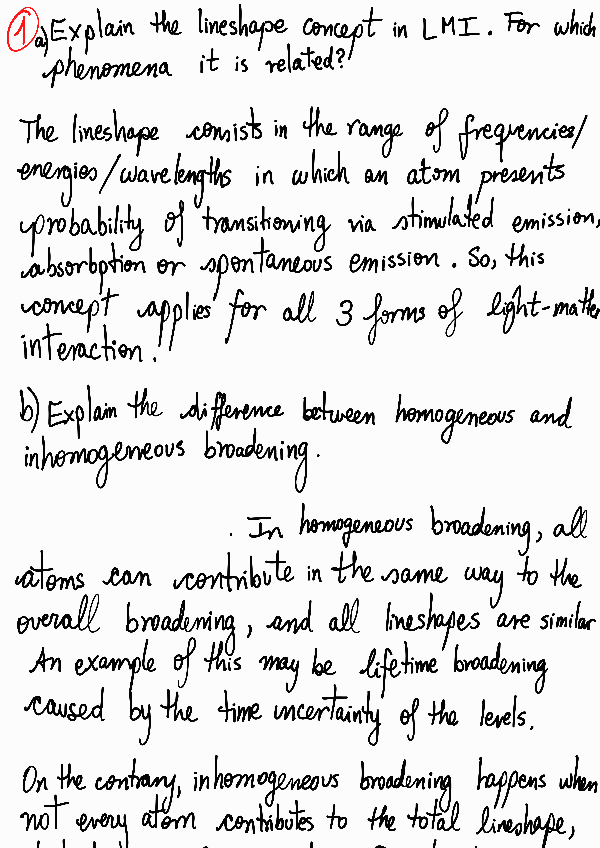 1 a) Explain the lineshape concept in LMI. For which
phenomena it is related?
The lineshape consists in the range of frequencies/
energies/wavelengths in which an atom presents
probability of transitioning via stimulated emission,
absorbption or spontaneous emission. So, this
concept applies for all 3 forms of light-matte
interaction.
b) Explain the difference between homogeneous and
inhomogeneous broadening.
. In homogeneous broadening, all
atoms can contribute in the same way to the
overall broadening, and all lineshapes are similar
An example of this may be lifetime broadening
caused by the time incertainty of the levels.
On the contrary, inhomogeneous broadening happens when
not every atom contributes to the total lineshape,